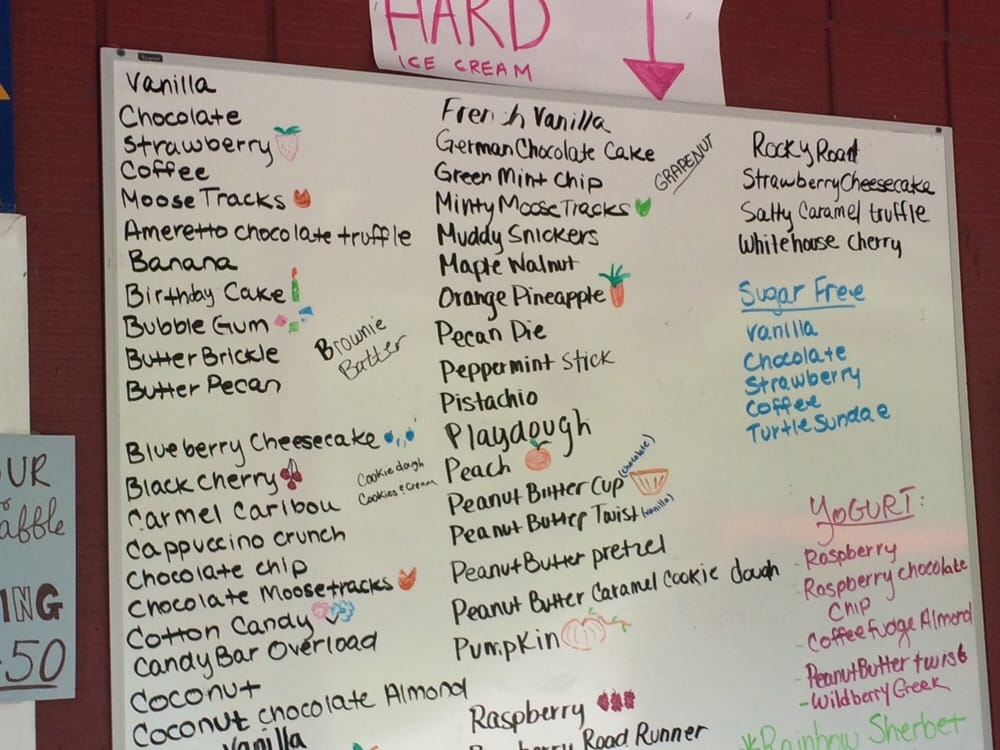 HARD
ICE CREAM
Vanilla
Chocolate
Strawberry
Coffee
Moose Tracks
Ameretto chocolate truffle
Banana
Birthday Cake
Bubble Gum
Butter Brickle
Butter Pecan
Brownie
Batter
Blueberry Cheesecake
Black cherry
Carmel Caribou
Cookie dough
Cookies & Cream
Cappuccino crunch
Chocolate chip
Chocolate Moosetracks
Cotton Candy
Candy Bar Overload
Coconut
Coconut chocolate Almond
Vanilla
French Vanilla
German Chocolate Cake
Green Mint Chip
GRAPENUT
Minty Moose Tracks
Muddy Snickers
Maple Walnut
Orange Pineapple
Pecan Pie
Peppermint Stick
Pistachio
Playdough
Peach
Peanut Butter Cup (chocolate)
Peanut Butter Twist (vanilla)
Peanut Butter pretzel
Peanut Butter Caramel Cookie dough
Pumpkin
Raspberry
Road Runner
Rocky Road
Strawberry Cheesecake
Salty Caramel truffle
White house cherry
Sugar Free
vanilla
Chocolate
Strawberry
Coffee
Turtle Sundae
YOGURT:
- Raspberry
- Raspberry chocolate
Chip
- Coffee fudge Almond
- Peanut Butter twist
- Wildberry Greek
*Rainbow Sherbet
OUR
affle
ING
.50